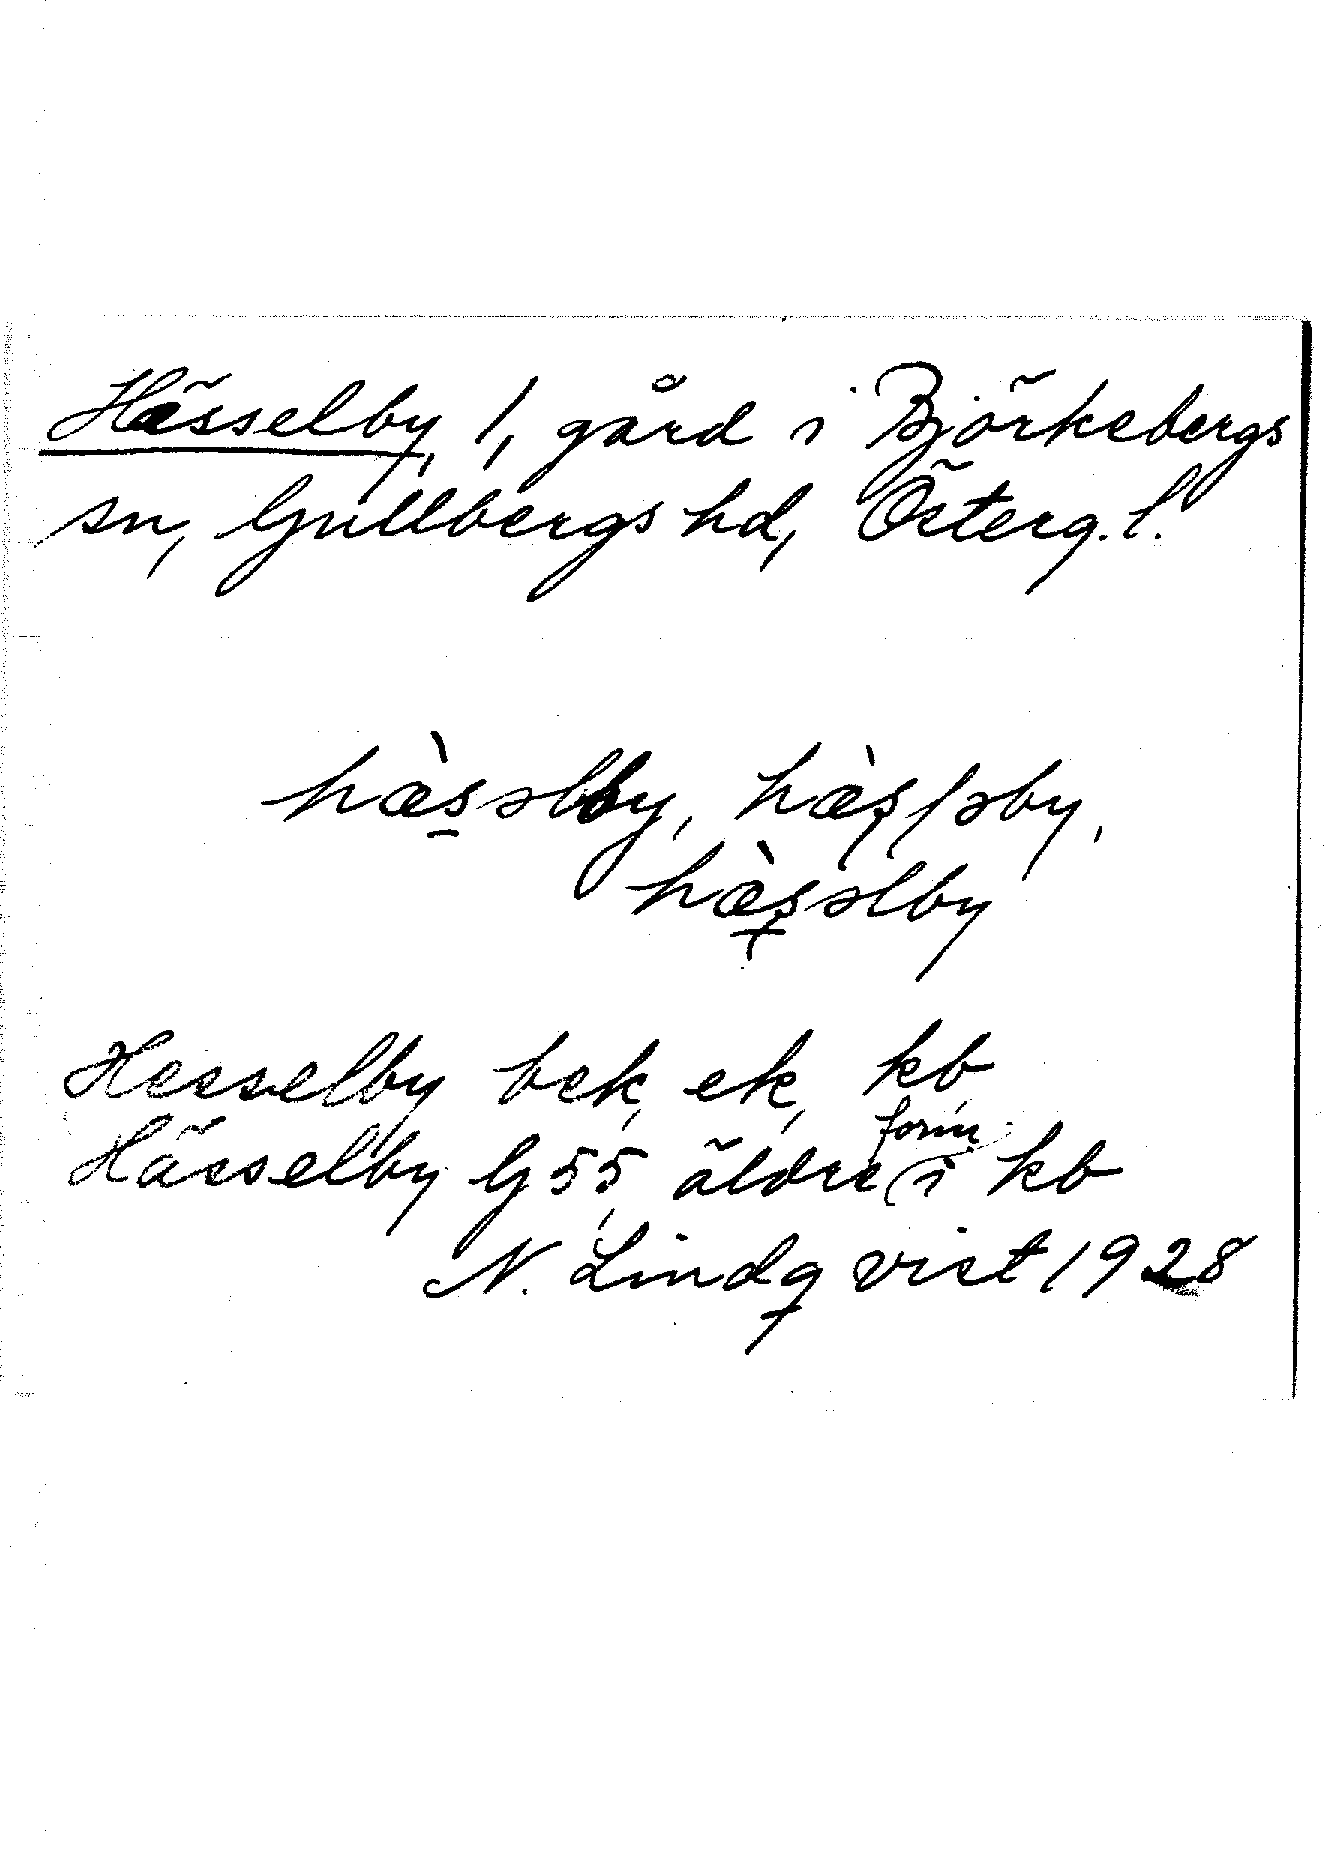 Hässelby, 1, gård i Björkebergs
sn, Gullbergs hd, Österg. l.
hæ̀s̱əlby, hæ̀sləby,
hæ̀səlby
Hesselby bek, ek, kb,
Hässelby G 55, äldre form i kb
N. Lindqvist 1928